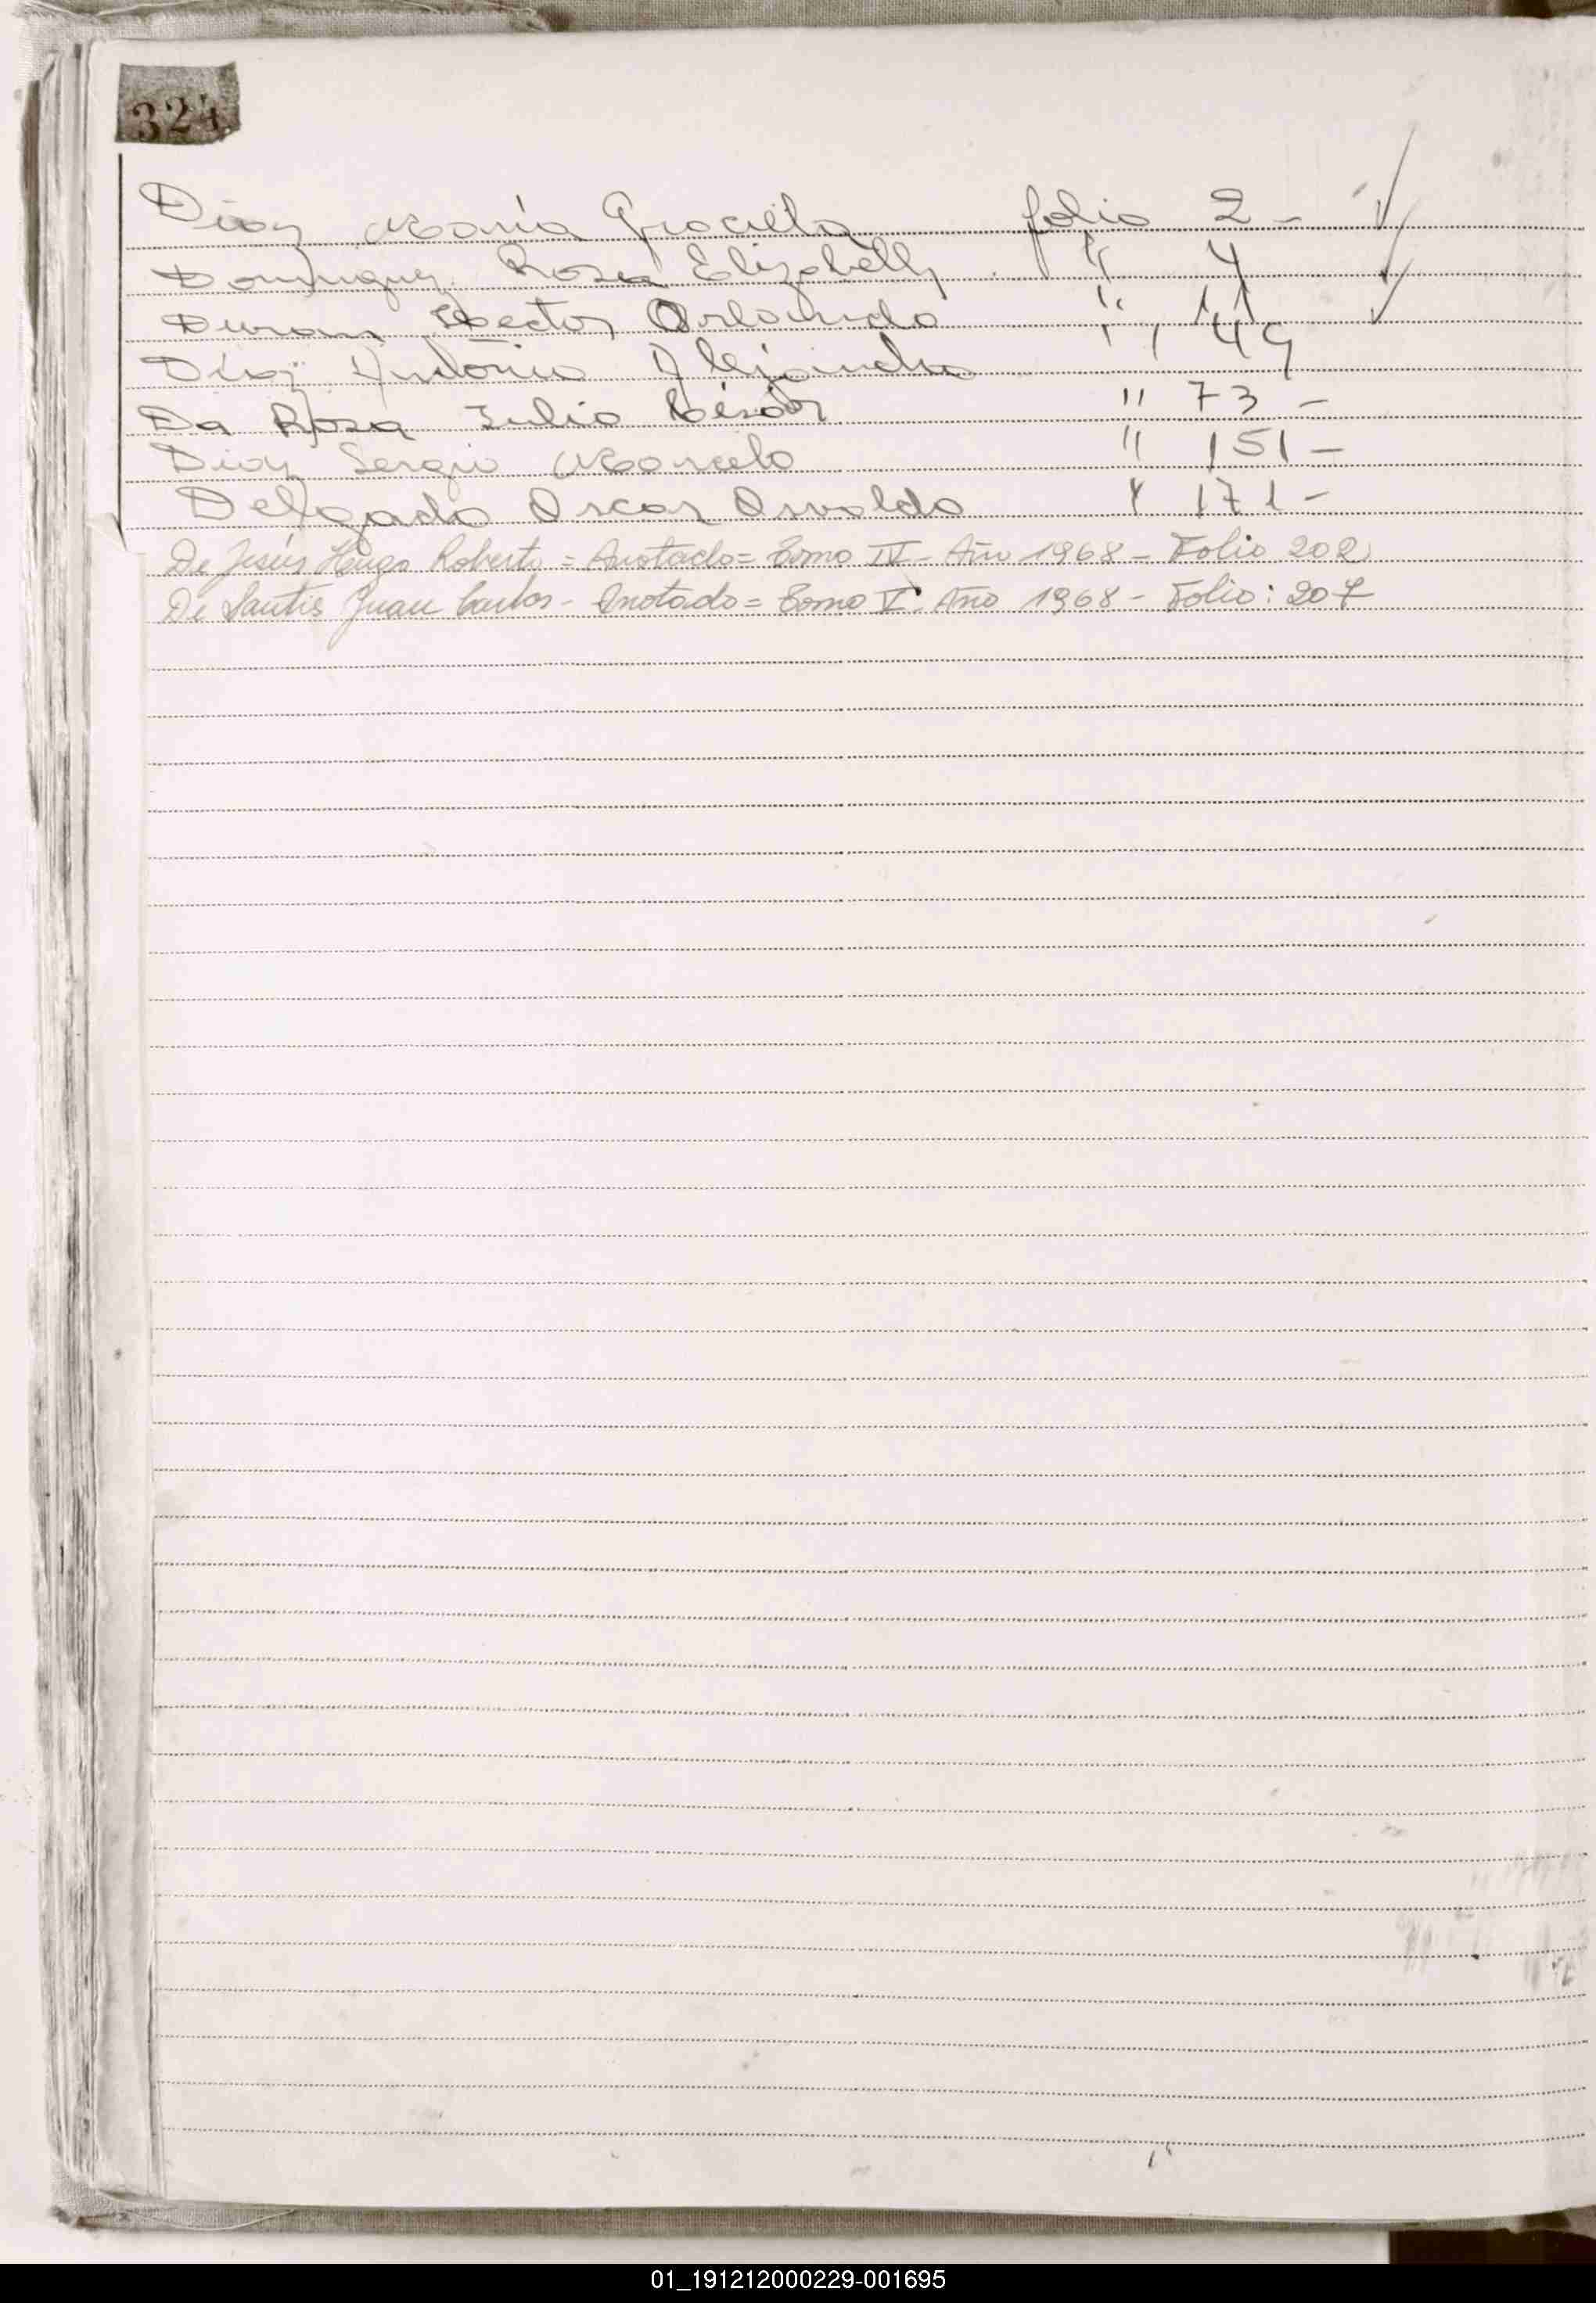 324
Diaz Maria Graciela folio 2 -
Dominguez Rosa Elizabeth " 4
Duran Hector Orlando " 11
Diaz Antonio Alejandro " 49
Da Rosa Julio César " 73 -
Diaz Sergio Marcelo " 151 -
Delgado Oscar Osvaldo " 171 -
De Jesús Hugo Roberto = Anotado = Tomo IV - Año 1968 - Folio 202
De Santis Juan Carlos - Anotado = Tomo V - Año 1968 - Folio: 207
01_191212000229-001695